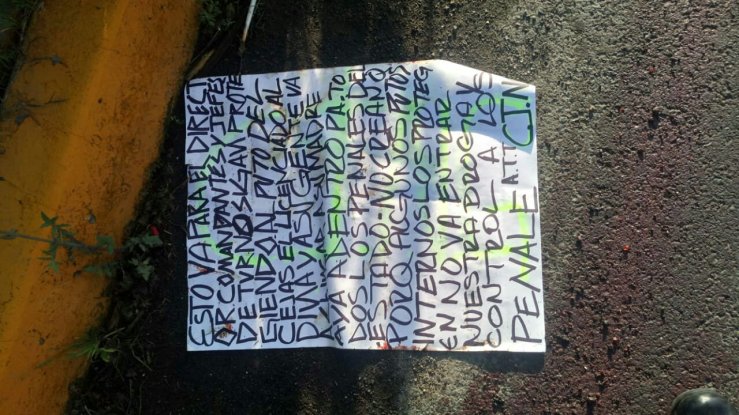 ESTO VA PARA EL DIRECT
OR COMANDANTES Y JEFES
DE TURNO SIGAN PROTE
GIENDO AL PUTO DEL
CEJAS EL LICENCIADO AL
DIMAY A SU GENTE VA
LLA MADRE
AYA ADENTRO PA. TO
DOS LOS PENALES DEL
ESTADO. NO CREAN Q
PORQ ALGUNOS PUTOS
INTERNOS LOS PROTEG
EN NO VA ENTRAR
NUESTRA DROGA Y
CONTROL A LOS
PENALE ATT CJN